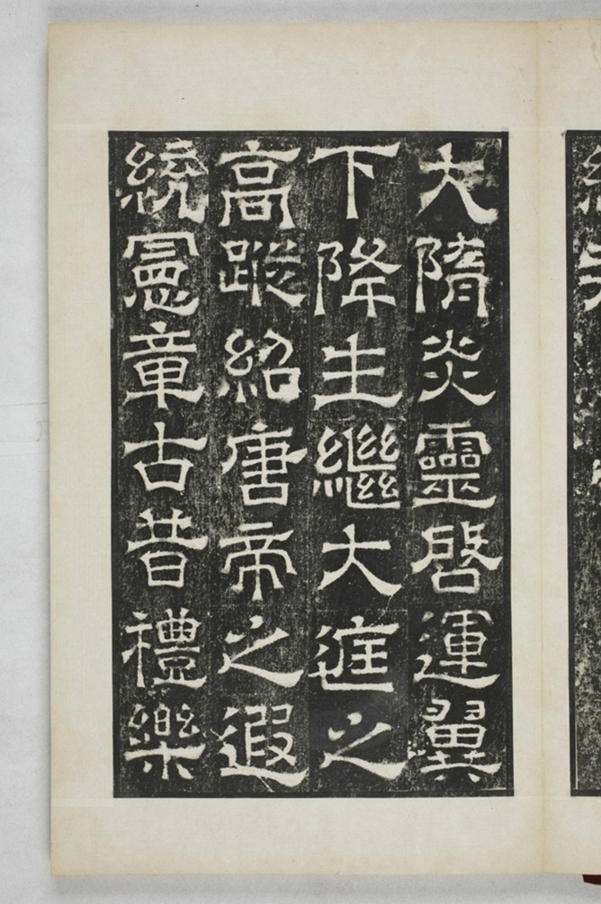 大隋炎靈啓運翼
下降生繼大庭之
高蹤紹唐帝之遐
統憲章古昔禮樂